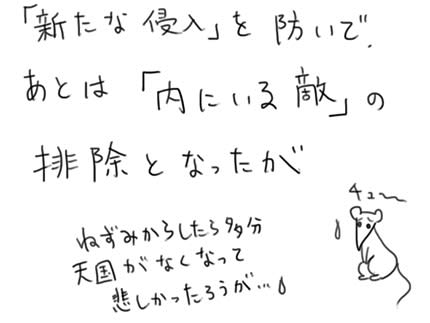 「新たな侵入」を防いで、
あとは「内にいる敵」の
排除となったが
チュ〜
ねずみからしたら多分
天国がなくなって
悲しかったろうが…